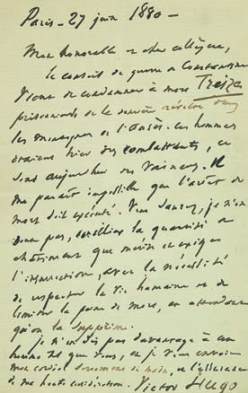 Paris - 27 juin 1880 -
Mon honorable et cher collègue,
le conseil de guerre de Constantine
vient de condamner à mort Treize
prisonniers de la dernière révolte dans
les montagnes de l'Aurès. Ces hommes
étaient hier des combattants, ce
sont aujourd'hui des vaincus. Il
me paraît impossible que l'arrêt de
mort soit exécuté. Vous saurez, je n'en
doute pas, concilier la quantité de
châtiment que mérite et exige
l'insurrection, avec la nécessité
de respecter la vie humaine et de
limiter la peine de mort, en attendant
qu'on la supprime.
Je n'en dis pas davantage à un
homme tel que vous, et je vous envoie
mon cordial serrement de main, et l'assurance
de ma haute considération. Victor Hugo